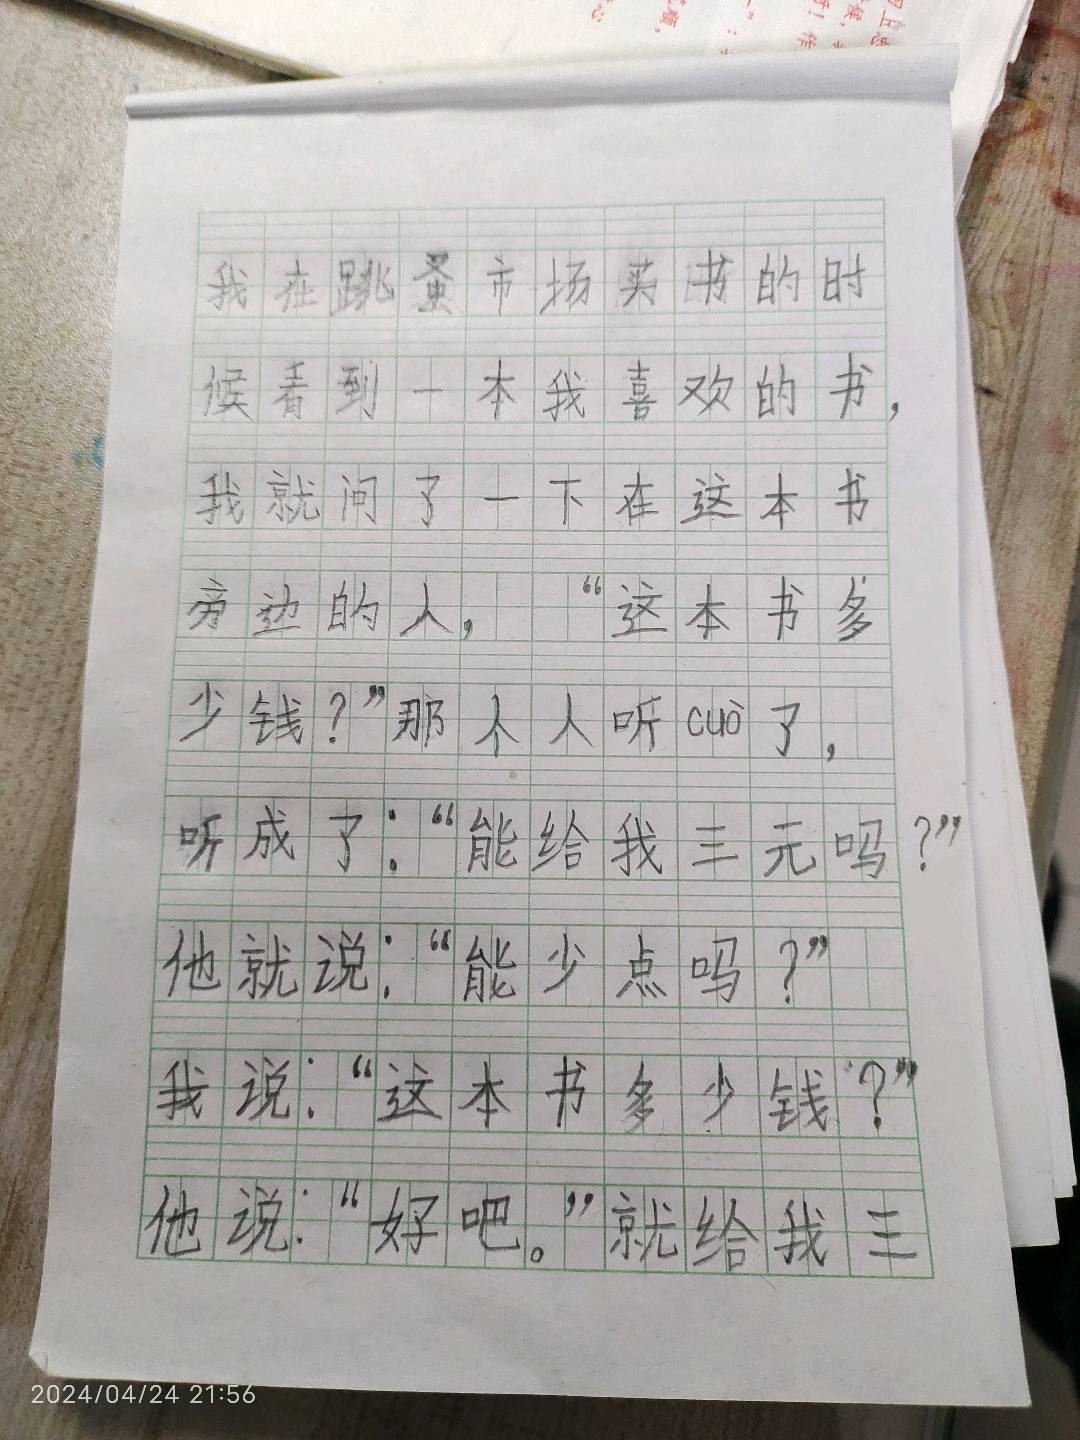 我在跳蚤市场买书的时
候看到一本我喜欢的书，
我就问了一下在这本书
旁边的人，“这本书多
少钱？”那个人听cuò了，
听成了：“能给我三元吗？”
他就说：“能少点吗？”
我说：“这本书多少钱？”
他说：“好吧。”就给我三
2024/04/24 21:56